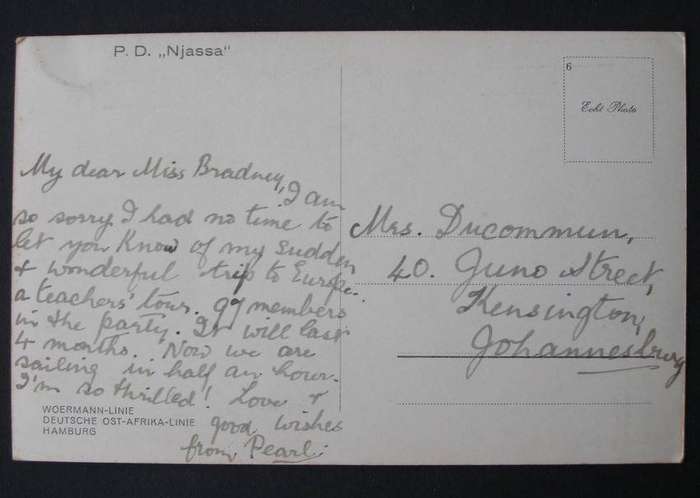 P. D. „Njassa"
6
Echt Photo
My dear Miss Bradney, I am
so sorry I had no time to
let you know of my sudden
& wonderful trip to Europe.
a teachers' tour. 97 members
in the party. It will last
4 months. Now we are
sailing in half an hour.
I'm so thrilled! Love &
good wishes
from Pearl.
Mrs. Ducommun,
40. Juno Street,
Kensington,
Johannesburg
WOERMANN-LINIE
DEUTSCHE OST-AFRIKA-LINIE
HAMBURG